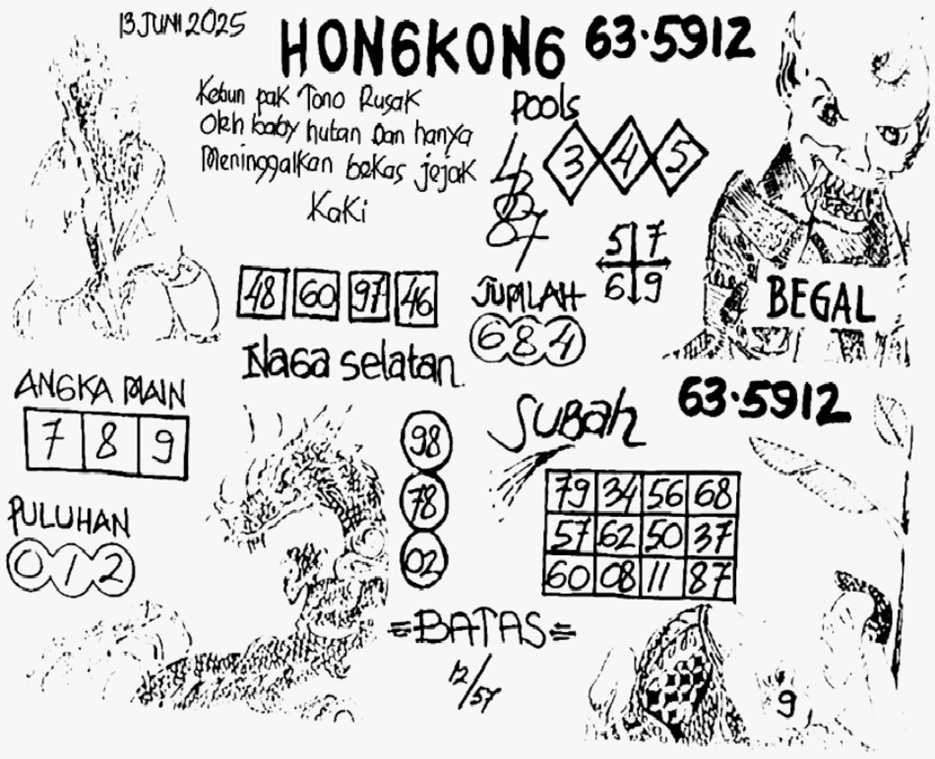 13 JUNI 2025
HONGKONG 63.5912
Kebun pak Tono Rusak
Oleh baby hutan Dan hanya
Meninggalkan bekas jejak
Kaki
Pools
3 4 5
87
5 7
6 9
BEGAL
48 60 97 46
JUMLAH
6 8 4
Naga selatan
ANGKA MAIN
7 8 9
63.5912
Subah
98
78
02
79 34 56 68
57 62 50 37
60 08 11 87
PULUHAN
0 1 2
=BATAS=
12/57
9